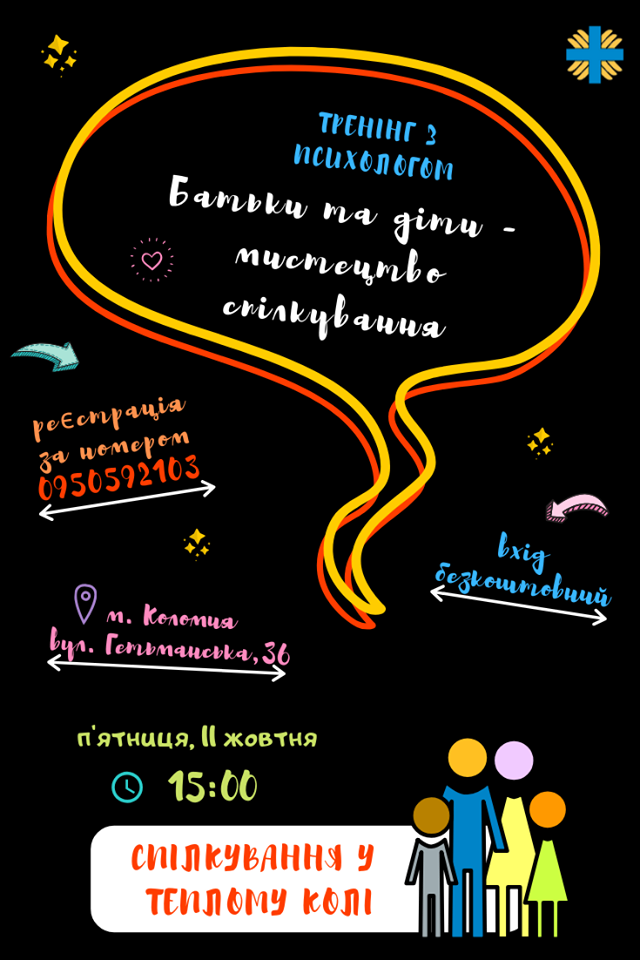 ТРЕНІНГ З
ПСИХОЛОГОМ
Батьки та діти -
мистецтво
спілкування
реЄстрація
за номером
0950592103
вхід
безкоштовний
м. Коломия
вул. Гетьманська,36
п'ятниця, 11 жовтня
15:00
СПІЛКУВАННЯ У
ТЕПЛОМУ КОЛІ